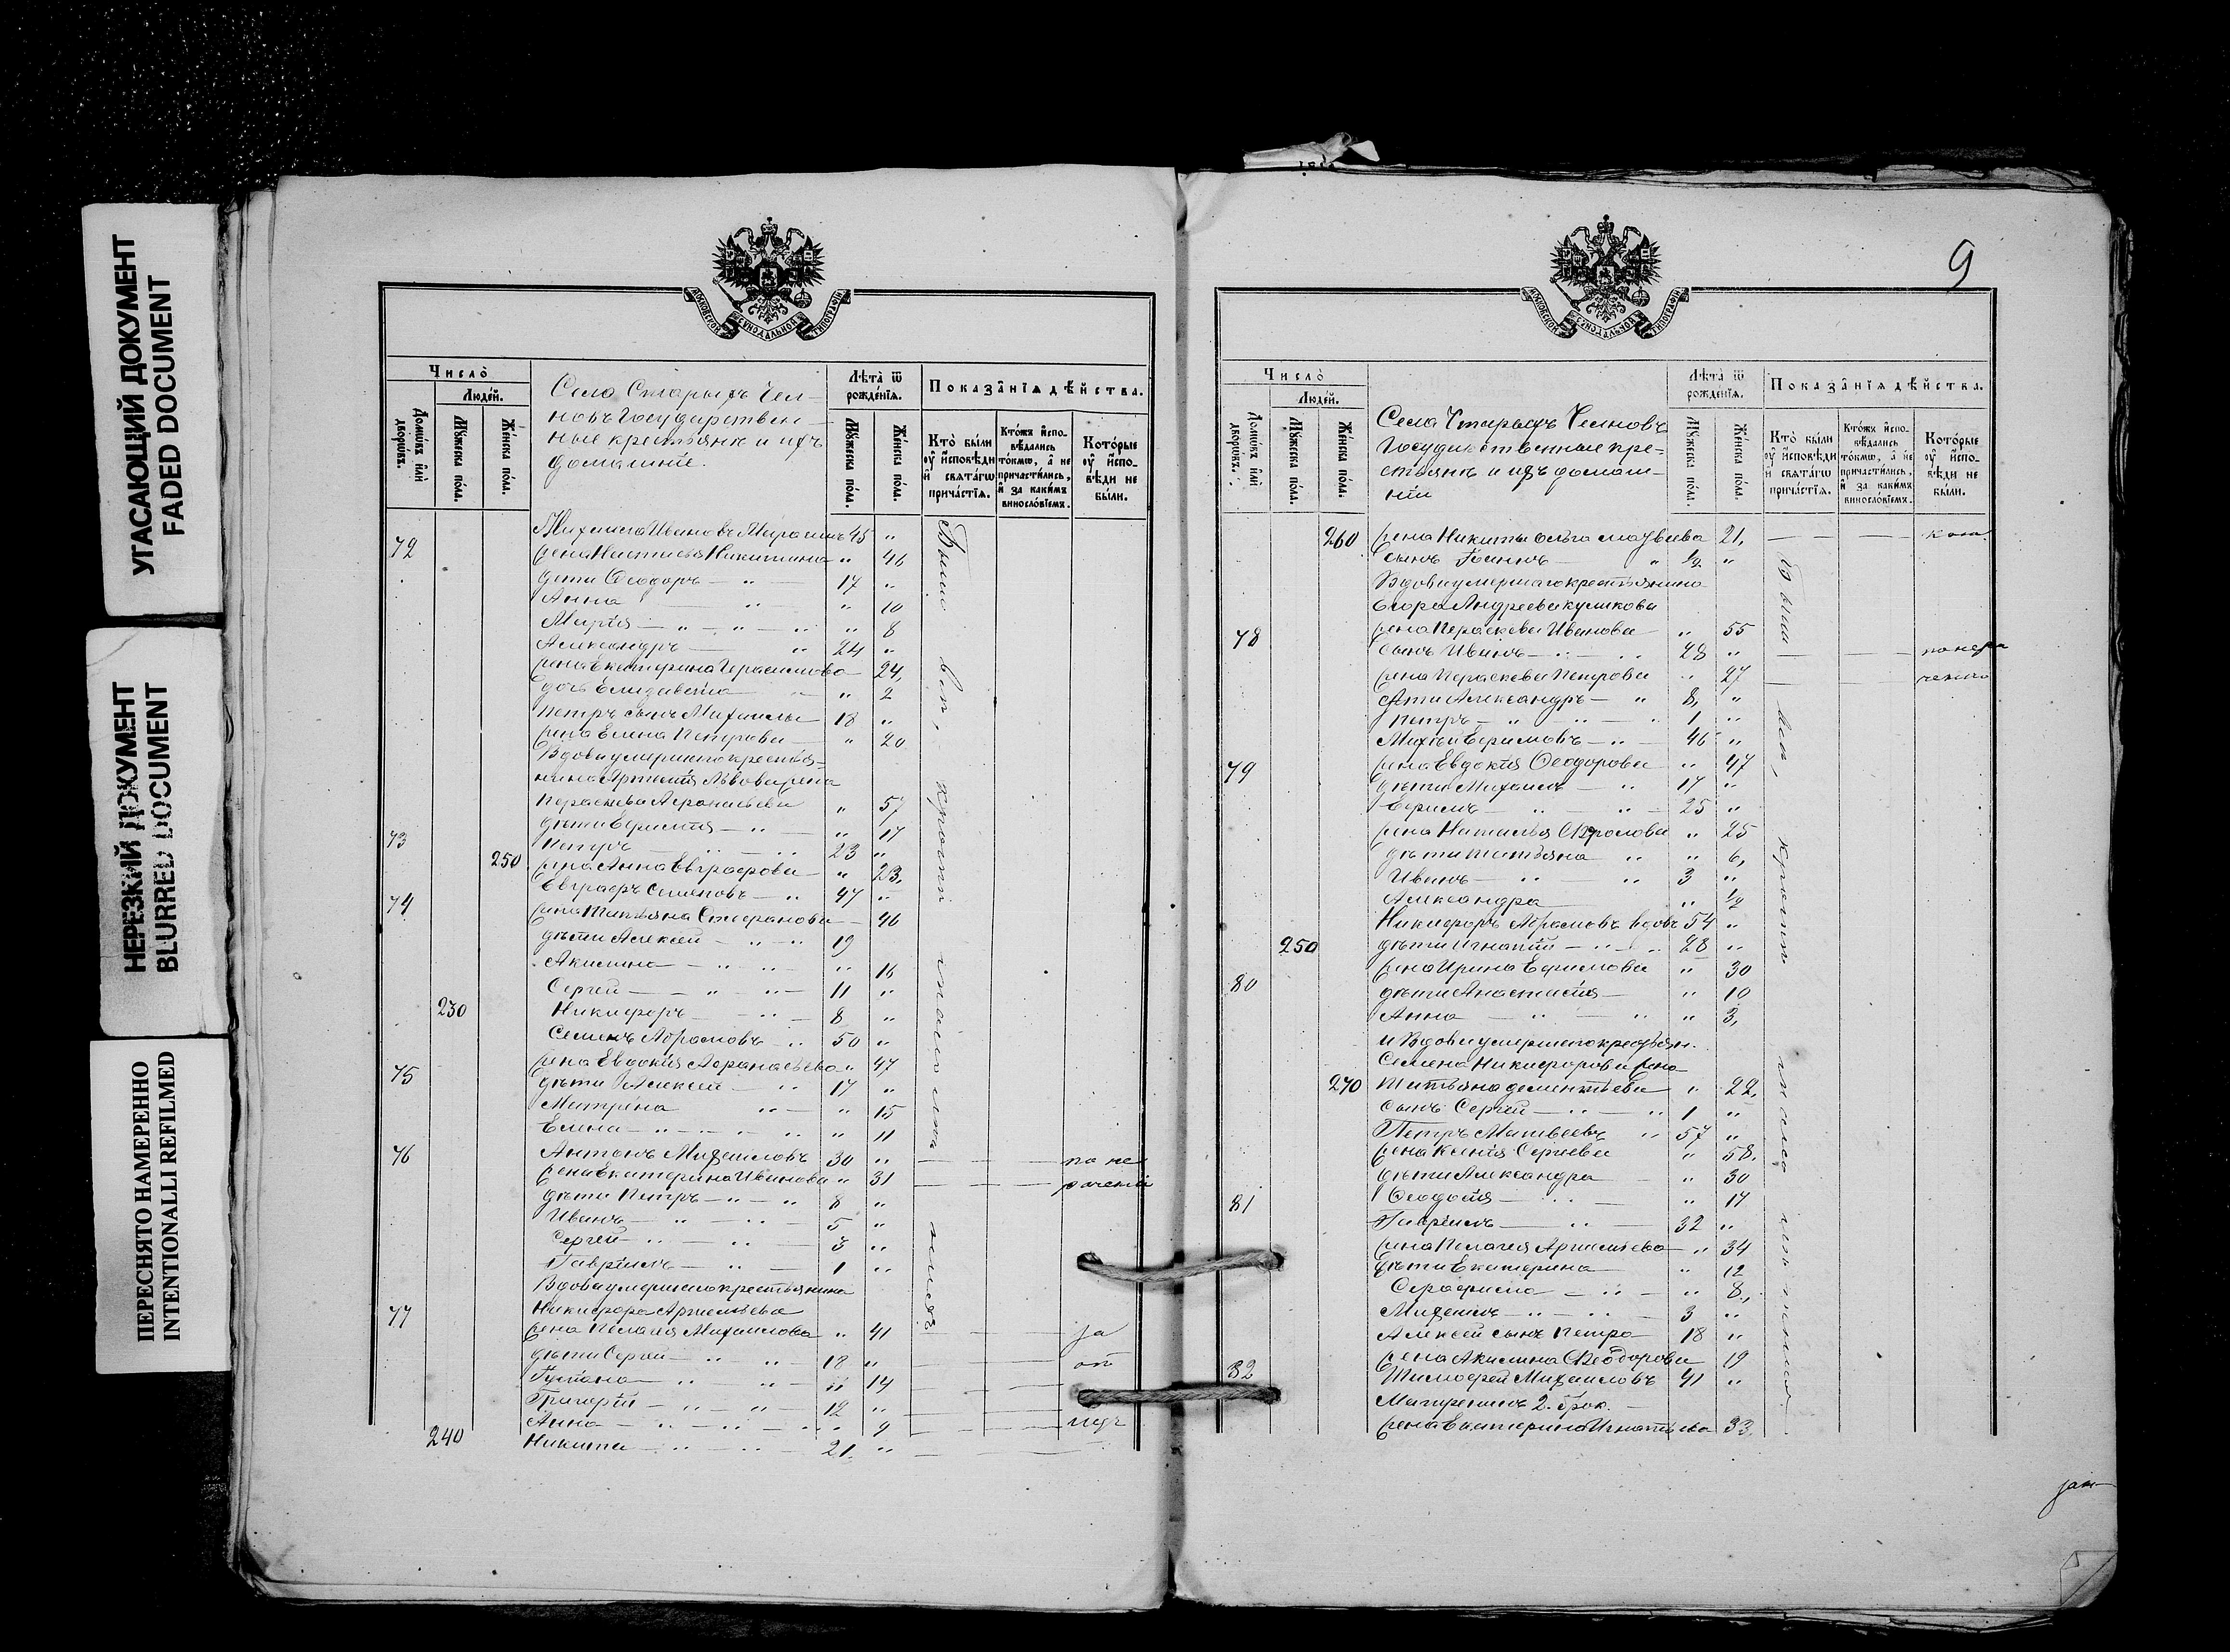 УГАСАЮЩИЙ ДОКУМЕНТ
FADED DOCUMENT
НЕРЕЗКИЙ ДОКУМЕНТ
BLURRED DOCUMENT
ПЕРЕСНЯТО НАМЕРЕННО
INTENTIONALLI REFILMED
МОСКОВСКОЙ СѴНОДАЛЬНОЙ ТИПОГРАФІИ
Число̀
Люде́й.
Домѡ́въ и҆лѝ дворѡ́въ.
Мꙋ́жеска по́ла.
Же́нска по́ла.
Село Старыхъ Чел-
новъ Государствен-
ные крестьяне и ихъ
домашніе.
Лѣта̀ ѿ рожде́нїѧ.
Мꙋ́жеска по́ла.
Же́нска по́ла.
Показа̑нїѧ дѣ́йства.
Кто̀ бы́ли ᲂу҆ и҆́сповѣди и҆ свѧта́гѡ прича́стїѧ.
Кто́жъ и҆сповѣ́дались то́кмѡ, а҆ не причасти́лись, и҆ за каки́мъ виносло́вїемъ.
Кото́рые ᲂу҆ и҆́сповѣди не бы́ли.
72 Михаилъ Ивановъ 45 "
жена Настасья Никитина " 46
дети Ѳеодоръ 17 "
Анна " 10
Марія " 8
Александръ 24 "
жена Екатерина Герасимова 24
дочь Елизавета " 2
Петръ сынъ Михаилы 18 "
жена Елена Петрова " 20
Вдова умершаго крестья-
нина Артемія Львова жена
Параскева Афанасьева " 57
73 дѣти Евфимія " 17
Петръ 23 "
250 жена Анна Евграфова " 23
74 Евграфъ Семеновъ 47 "
жена Татьяна Стефанова 46
дѣти Алексей 19
Акилина " 16
Сергей 11 "
230 Никифоръ 8 "
Семенъ Абрамовъ 50 "
75 жена Евдокія Афанасьева " 47
дѣти Алексей 17 "
Матрена " 15
Елена " 11
76 Антонъ Михаиловъ 30 " по не
жена Екатерина Иванова " 31 раченію
дѣти Петръ 8 "
Иванъ 5 "
Сергей 3 "
Гавріилъ 1 "
Вдова умершаго крестьянина
77 Никифора Артемьева
жена Пелагія Михаилова " 41 за
дѣти Сергей 18 " от
14
Григорій 12 "
Анна " 9
240 Никита 21 "
9
МОСКОВСКОЙ СѴНОДАЛЬНОЙ ТИПОГРАФІИ
Число̀
Люде́й.
Домѡ́въ и҆лѝ дворѡ́въ.
Мꙋ́жеска по́ла.
Же́нска по́ла.
Село Старыхъ Челновъ
Государственные кре-
стьяне и ихъ домаш-
ніи
Лѣта̀ ѿ рожде́нїѧ.
Мꙋ́жеска по́ла.
Же́нска по́ла.
Показа̑нїѧ дѣ́йства.
Кто̀ бы́ли ᲂу҆ и҆́сповѣди и҆ свѧта́гѡ прича́стїѧ.
Кто́жъ и҆сповѣ́дались то́кмѡ, а҆ не причасти́лись, и҆ за каки́мъ виносло́вїемъ.
Кото́рые ᲂу҆ и҆́сповѣди не бы́ли.
260 жена Никиты Ольга Матвеева 21
сынъ Іоаннъ ½ "
Вдова умершаго крестьянина
Егора Андреева Куликова
78 жена Параскева Иванова " 55
сынъ Иванъ 28 " по нера
жена Параскева Петрова " 27 ченію
дѣти Александръ 8 "
Петръ 1 "
Михеи Ефимовъ 46 "
79 жена Евдокія Ѳеодорова " 47
дѣти Михаилъ 17 "
Ефимъ 25 "
жена Наталья Фролова " 25
дѣти Татьяна " 6
Иванъ 3 "
Александра " ½
Никифоръ Абрамовъ вдовъ 54 "
250 дѣти Игнатій 28 "
жена Ирина Ефимова " 30
80 дѣти Анастасія " 10
Анна " 3
и Вдова умершаго крестьян.
Семена Никифорова жена
270 Татьяна Дементьева " 22
сынъ Сергей 1 "
Петръ Матвеевъ 57 "
жена Ксенія Сергеева " 58
дѣти Александра " 30
81 Ѳеодосія " 17
Гавріилъ 32 "
жена Пелагея Артемьева " 34
дѣти Екатерина " 12
Серафима " 8
Михаилъ 3 "
Алексей сынъ Петра 18 "
жена Акилина Ѳеодорова 19
82 Тимофей Михаиловъ 41 "
2. брак.
жена Екатерина Игнатьева 33